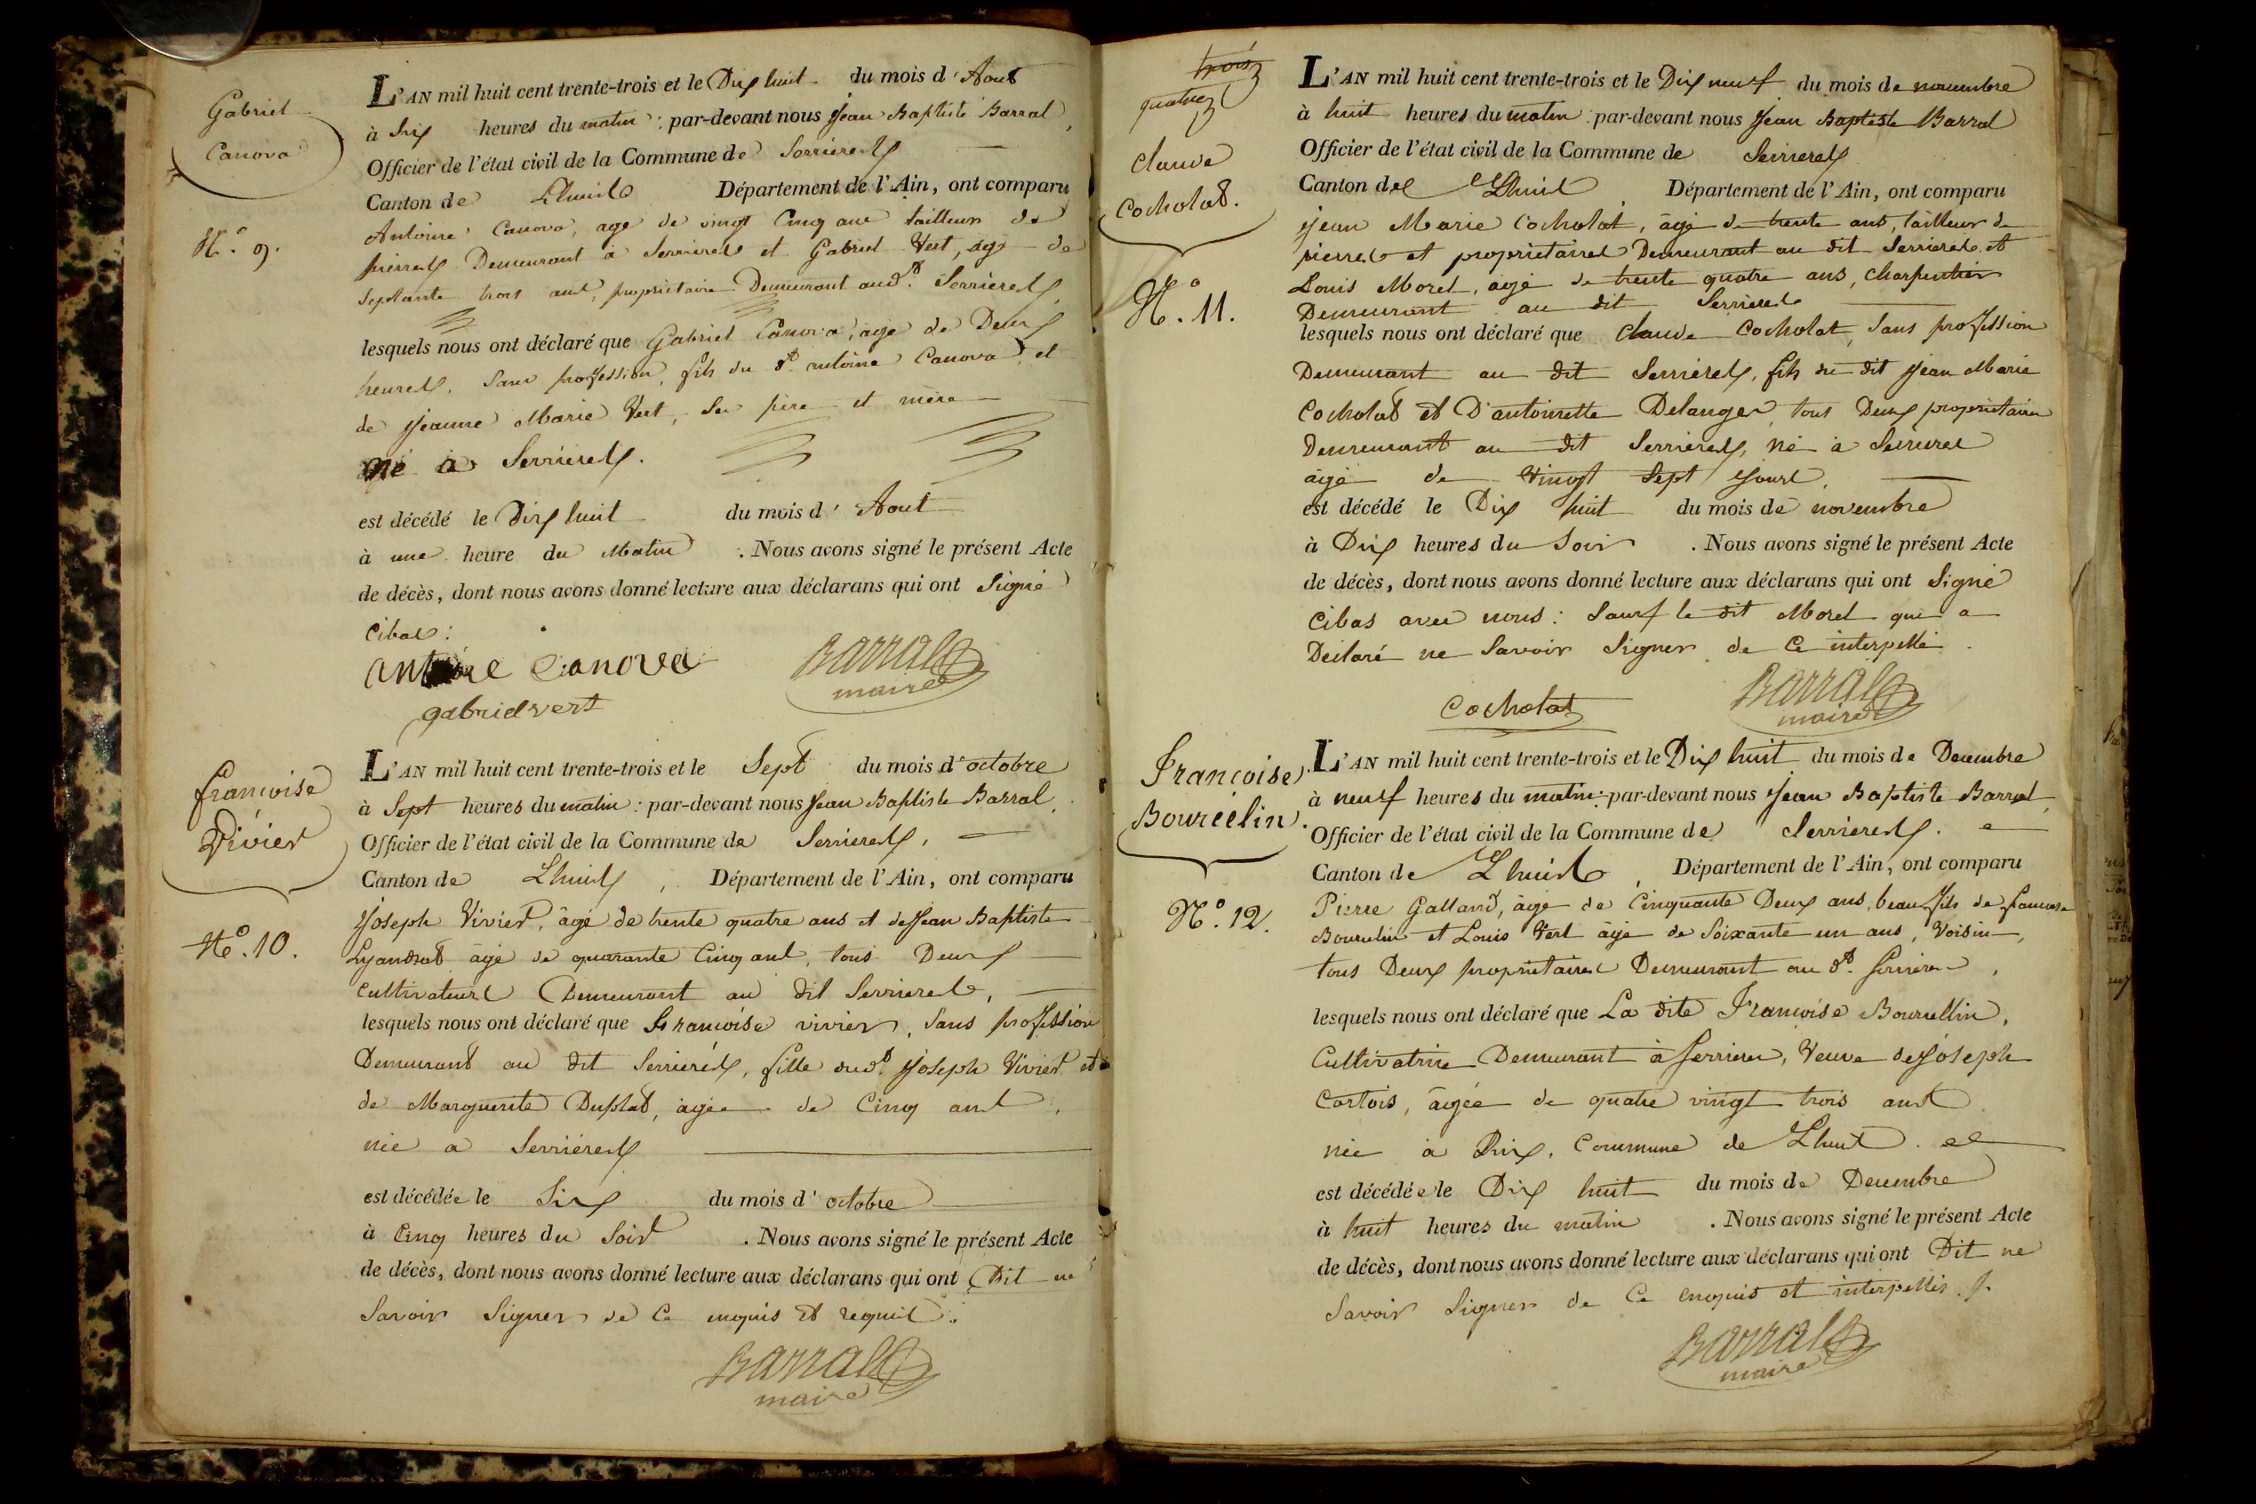 Gabriel
Canova
N.° 9.
L'AN mil huit cent trente-trois et le Dix huit du mois d'Aout
à Six heures du matin : par-devant nous Jean Baptiste Barral,
Officier de l'état civil de la Commune de Serrieres
Canton de Lhuis Département de l'Ain, ont comparu
Antoine Canova, age de vingt Cinq ans tailleur de
pierres Demeurant à Serrieres et Gabriel Vert, age de
septante trois ans, proprietaire Demeurant aud.t Serrieres,
lesquels nous ont déclaré que Gabriel Canova, age de Deux
heures, Sans profession, fils du d.t antoine Canova, et
de Jeanne Marie Vert, Ses pere et mère
né à Serrieres.
est décédé le Dix huit du mois d'Aout
à une heure du Matin . Nous avons signé le présent Acte
de décès, dont nous avons donné lecture aux déclarans qui ont Signé
Cibas :
antoine Canova Barral
gabriel vert maire
françoise
Vivier
N.° 10.
L'AN mil huit cent trente-trois et le Sept du mois d'octobre
à Sept heures du matin : par-devant nous Jean Baptiste Barral,
Officier de l'état civil de la Commune de Serrieres,
Canton de Lhuis, Département de l'Ain, ont comparu
Joseph Vivier, âgé de trente quatre ans et de Jean Baptiste
âgé de quarante Cinq ans, tous Deux
Cultivateurs Demeurant au dit Serrieres,
lesquels nous ont déclaré que françoise vivier, Sans profession
Demeurant au dit Serrierés, fille dud.t Joseph Vivier et
de Marguerite Duplat, agée de Cinq ans,
née a Serriéres
est décédée le Six du mois d'octobre
à Cinq heures du Soir . Nous avons signé le présent Acte
de décès, dont nous avons donné lecture aux déclarans qui ont Dit ne
Savoir Signer de Ce enquis et requis :
Barral
maire
trois
quatre
Claude
Cocholat.
N.° 11.
L'AN mil huit cent trente-trois et le Dix neuf du mois de novembre
à huit heures du matin : par-devant nous Jean Baptiste Barral
Officier de l'état civil de la Commune de Serrieres
Canton de Lhuis Département de l'Ain, ont comparu
Jean Marie Cocholat, âgé de trente ans, tailleur de
pierres et proprietaires Demeurant au dit Serrieres et
Louis Morel, âgé de trente quatre ans, Charpentier
Demeurant au dit Serrieres
lesquels nous ont déclaré que Claude Cocholat, Sans profession
Demeurant au dit Serrieres, fils du dit Jean Marie
Cocholat et D'antoinette Delanger, tous Deux proprietaires
Demeurant au dit Serrieres, né à Serrieres
âgé de vingt Sept Jours.
est décédé le Dix huit du mois de novembre
à Dix heures du Soir . Nous avons signé le présent Acte
de décès, dont nous avons donné lecture aux déclarans qui ont Signé
Cibas avec nous : Sauf le dit Morel qui a
Déclaré ne Savoir Signer de Ce interpellé.
Cocholat Barral
maire
Françoise
Bourcelin.
N.° 12.
L'AN mil huit cent trente-trois et le Dix huit du mois de Decembre
à neuf heures du matin : par-devant nous Jean Baptiste Barral,
Officier de l'état civil de la Commune de Serrieres.
Canton de Lhuis, Département de l'Ain, ont comparu
Pierre Galland, âgé de Cinquante Deux ans, beau fils de francoise
Bourcelin et Louis Vert âgé de Soixante un ans, Voisin,
tous Deux proprietaires Demeurant au d.t Serrieres,
lesquels nous ont déclaré que La dite Françoise Bourcellin,
Cultivatrice Demeurant à Serrieres, Veuve de Joseph
Cortois, âgée de quatre vingt trois ans
née à Rix, Commune de Lhuis.
est décédée le Dix huit du mois de Decembre
à huit heures du matin . Nous avons signé le présent Acte
de décès, dont nous avons donné lecture aux déclarans qui ont Dit ne
Savoir Signer de Ce enquis et interpellés.
Barral
maire